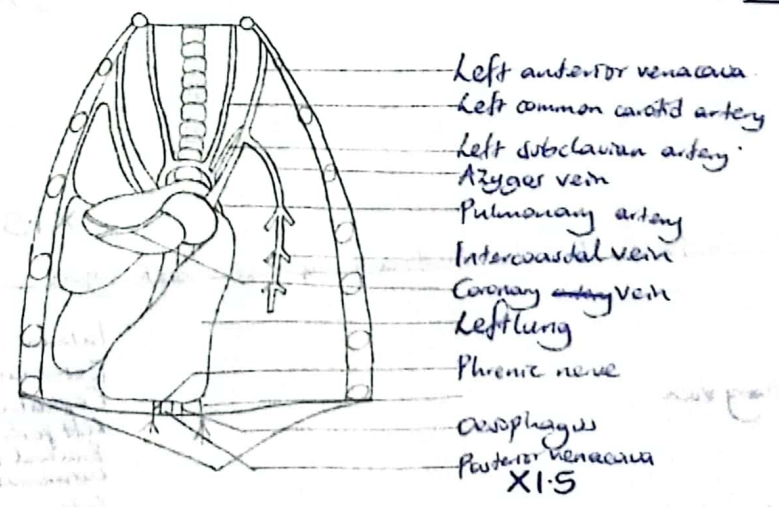 Left anterior venacava
Left common carotid artery
Left subclavian artery
Azygos vein
Pulmonary artery
Intercoastal vein
Coronary artery vein
Left lung
Phrenic nerve
Oesophagus
Posterior venacava
X1.5